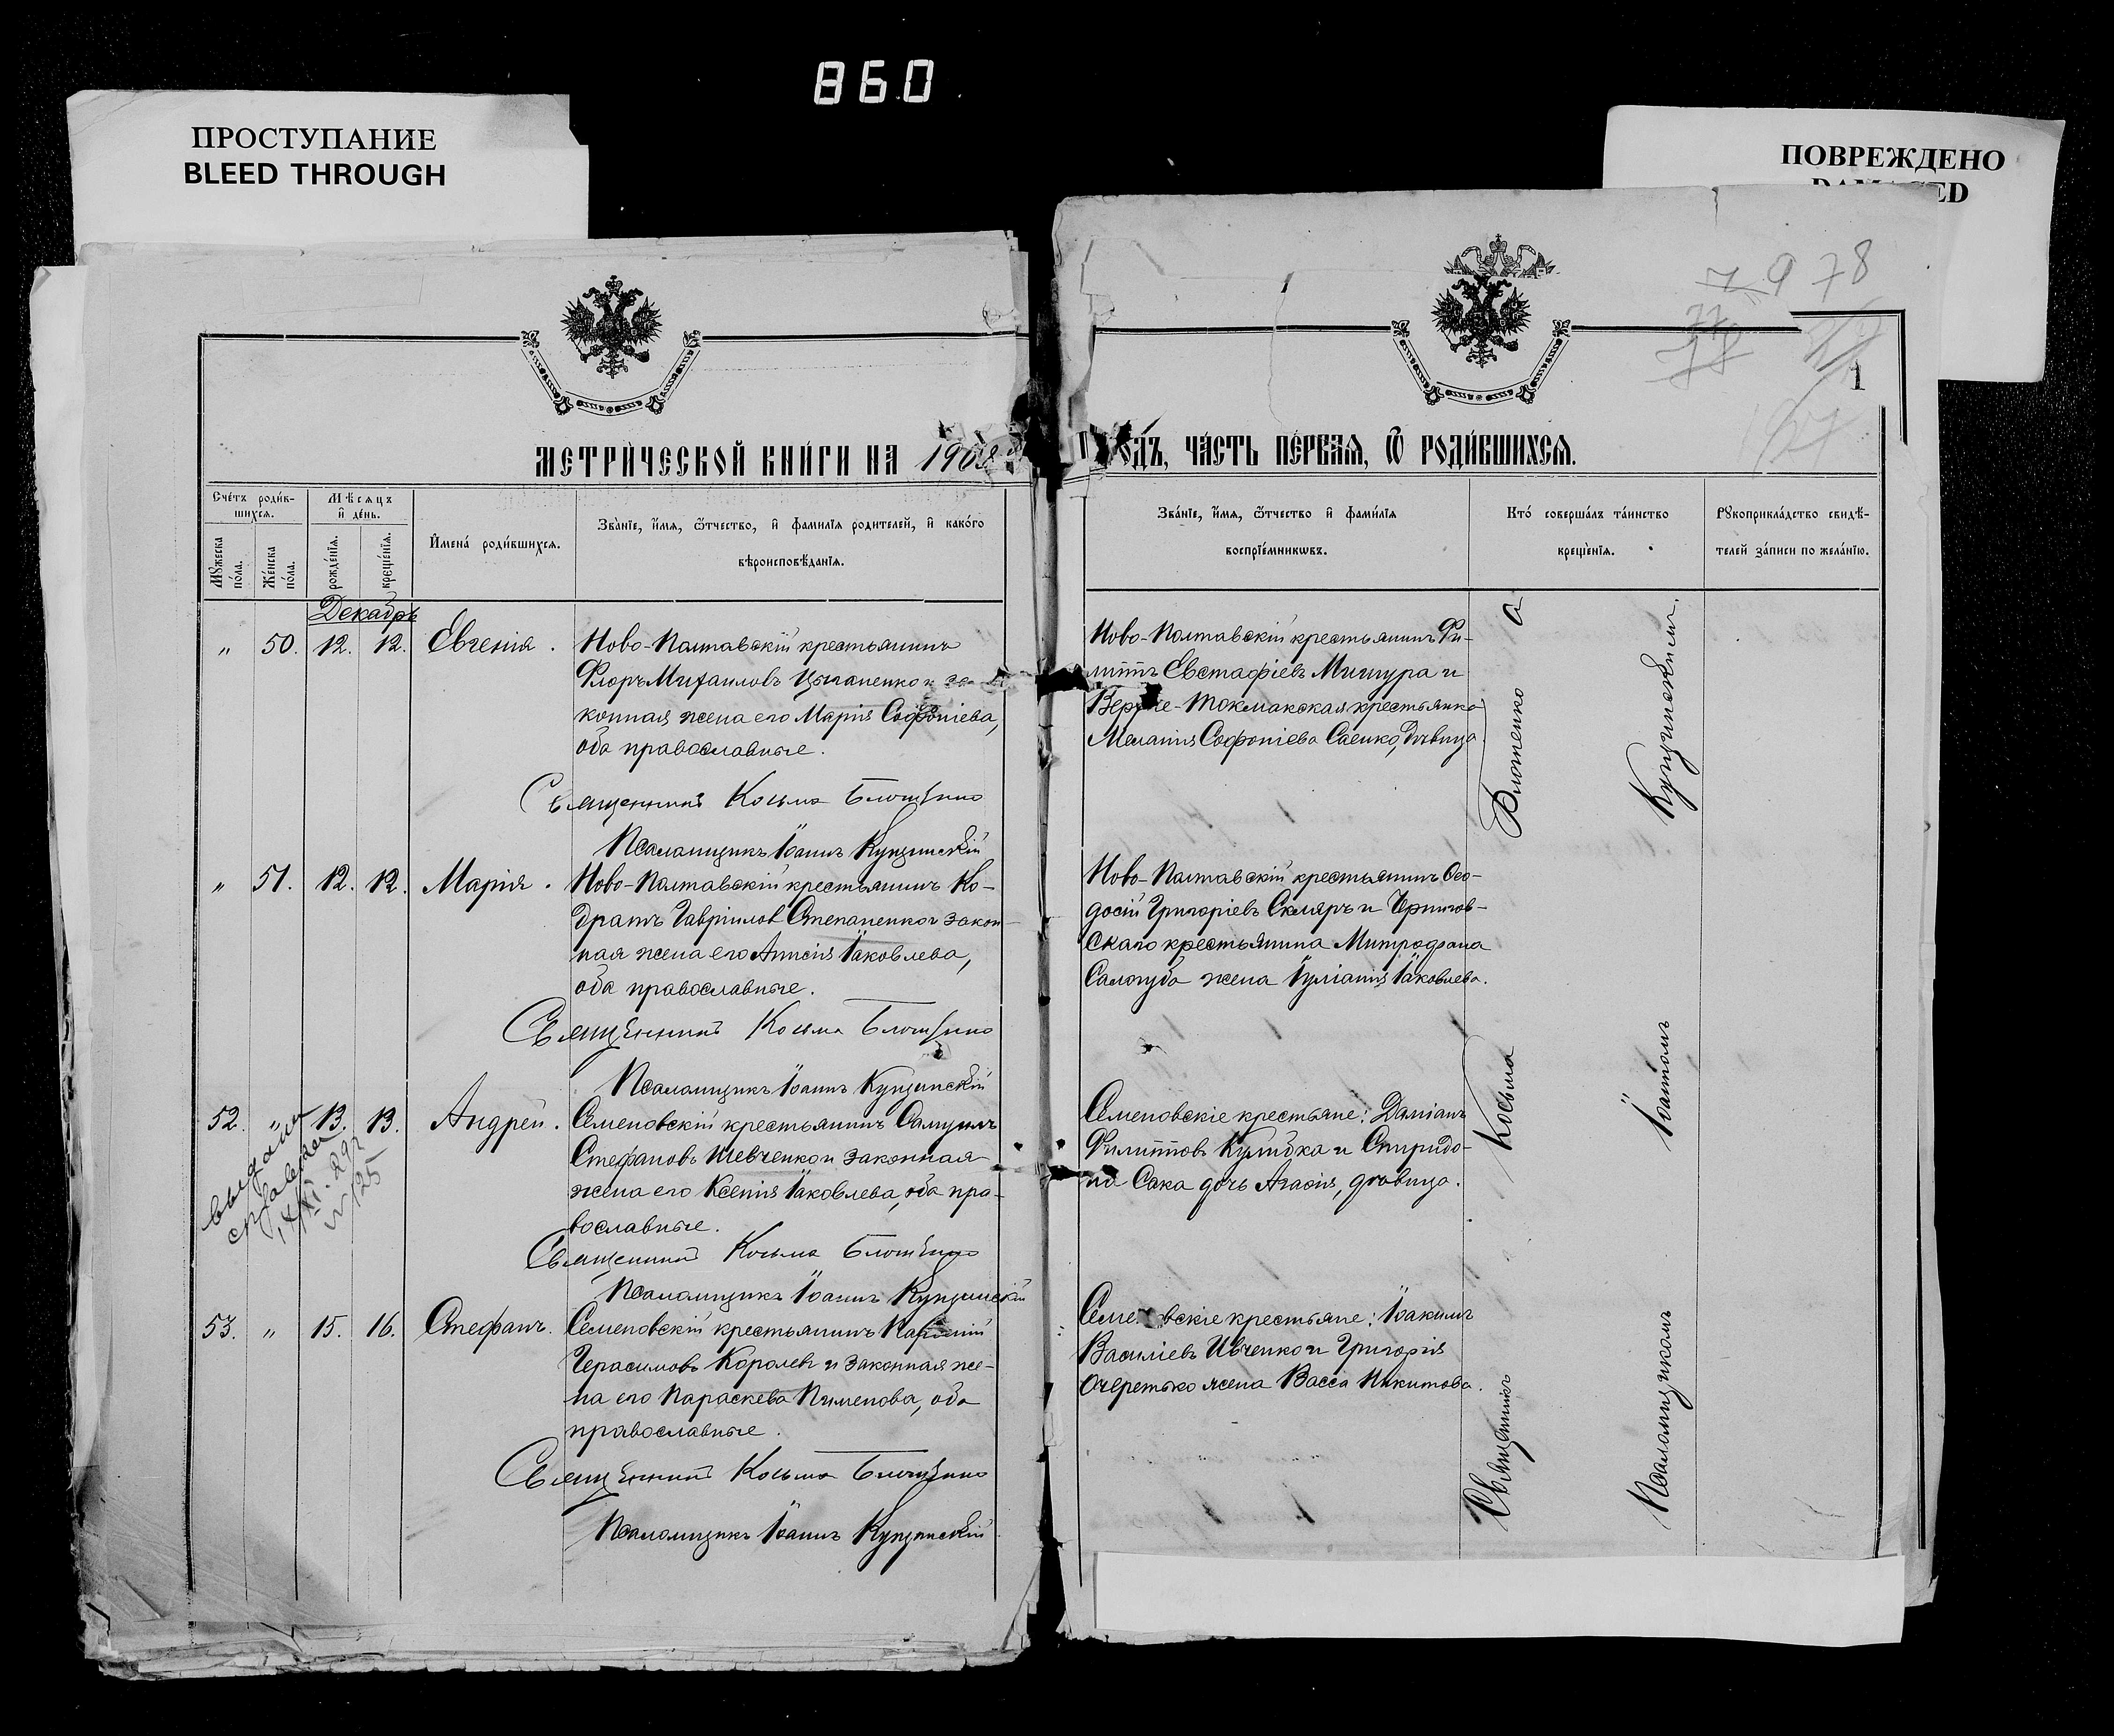 860
ПРОСТУПАНИЕ
BLEED THROUGH
ПОВРЕЖДЕНО
МЕТРИЧЕСКОЙ КНИГИ НА 1908
ГОДЪ, ЧАСТЬ ПЕРВАЯ, Ѿ РОДИВШИХСЯ.
978
1
Счетъ родив-
шихся.
Мужеска
пола.
Женска
пола.
Мѣсяцъ
и день.
рожденія.
крещенія.
Имена родившихся.
Званіе, имя, ѿтчество, и фамилія родителей, и какого
вѣроисповѣданія.
Званіе, имя, ѿтчество и фамилія
воспріемниковъ.
Кто совершалъ таинство
крещенія.
Рукоприкладство свидѣ-
телей записи по желанію.
Декабрь
" 50. 12. 12. Евгенія. Ново-Полтавскій крестьянинъ
Флоръ Михаиловъ Цыганенко и за-
конная жена его Марія Софоніева,
оба православные.
Священникъ Косьма
Псаломщикъ Іоаннъ
Ново-Полтавскій крестьянинъ Фи-
липпъ Евстафіевъ Мишура и
Верхне-Токмакская крестьянка
Меланія Софоніева Саенко, дѣвица.
" 51. 12. 12. Марія. Ново-Полтавскій крестьянинъ Ко-
дратъ Гавріиловъ Степаненко и закон-
ная жена его Анисія Іаковлева,
оба православные.
Священникъ Косьма
Псаломщикъ Іоаннъ
Ново-Полтавскій крестьянинъ Ѳео-
досій Григоріевъ Скляръ и Чернигов-
скаго крестьянина Митрофана
Салогуба жена Іуліанія Іаковлева.
52. " 13. 13. Андрей. Семеновскій крестьянинъ Самуилъ
Стефановъ Шевченко и законная
жена его Ксенія Іаковлева, оба пра-
вославные.
Священникъ Косьма
Псаломщикъ Іоаннъ
выдана
справка
№ 125
Семеновскіе крестьяне: Даміанъ
Филипповъ Кулибка и Спиридо-
на Сака дочь Агафія, дѣвица.
53. " 15. 16. Стефанъ. Семеновскій крестьянинъ
Герасимовъ Королевъ и законная же-
на его Параскева Пименова, оба
православные.
Священникъ Косьма
Псаломщикъ Іоаннъ
Семеновскіе крестьяне: Іоакимъ
Василіевъ Ивченко и Григорія
Очеретько жена Васса Никитова.
Священникъ Косьма
Псаломщикомъ Іоанномъ